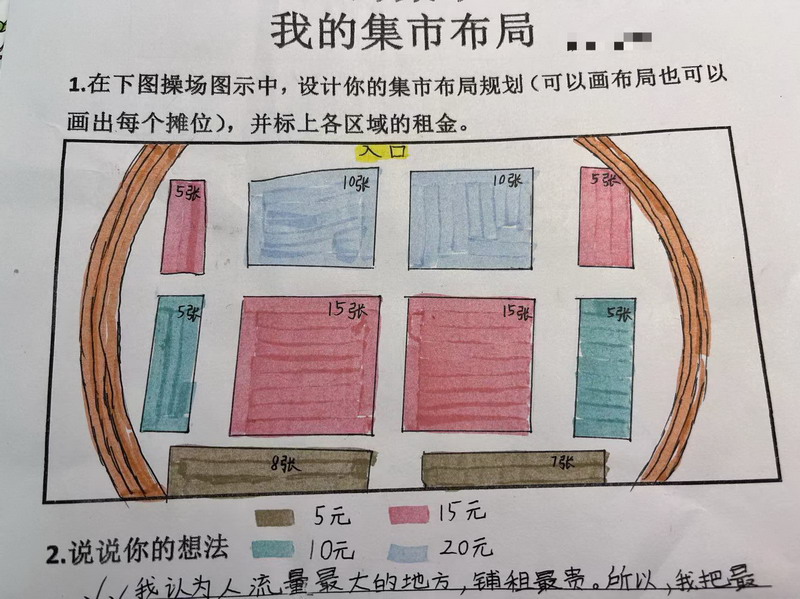 我的集市布局
1.在下图操场图示中，设计你的集市布局规划（可以画布局也可以
画出每个摊位），并标上各区域的租金。
入口
5张 10张 10张 5张
5张 15张 15张 5张
8张 7张
5元 15元
2.说说你的想法 10元 20元
我认为人流量最大的地方，铺租最贵。所以，我把最